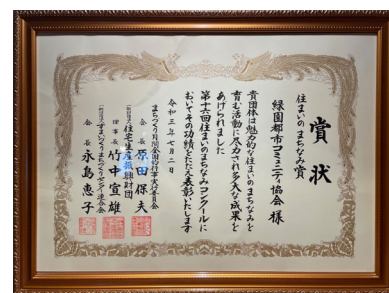 賞状
住まいのまちなみ賞
緑園都市コミュニティ協会 様
貴団体は魅力的な住まいのまちなみを
育む活動に尽力され多大な成果を
あげられました
第十六回住まいのまちなみコンクールに
おいてその功績をたたえ表彰いたします
令和三年七月二日
まちづくり月間全国的行事実行委員会
会長 原田保夫
一般財団法人 住宅生産振興財団
理事長 竹中宣雄
会長 永島恵子